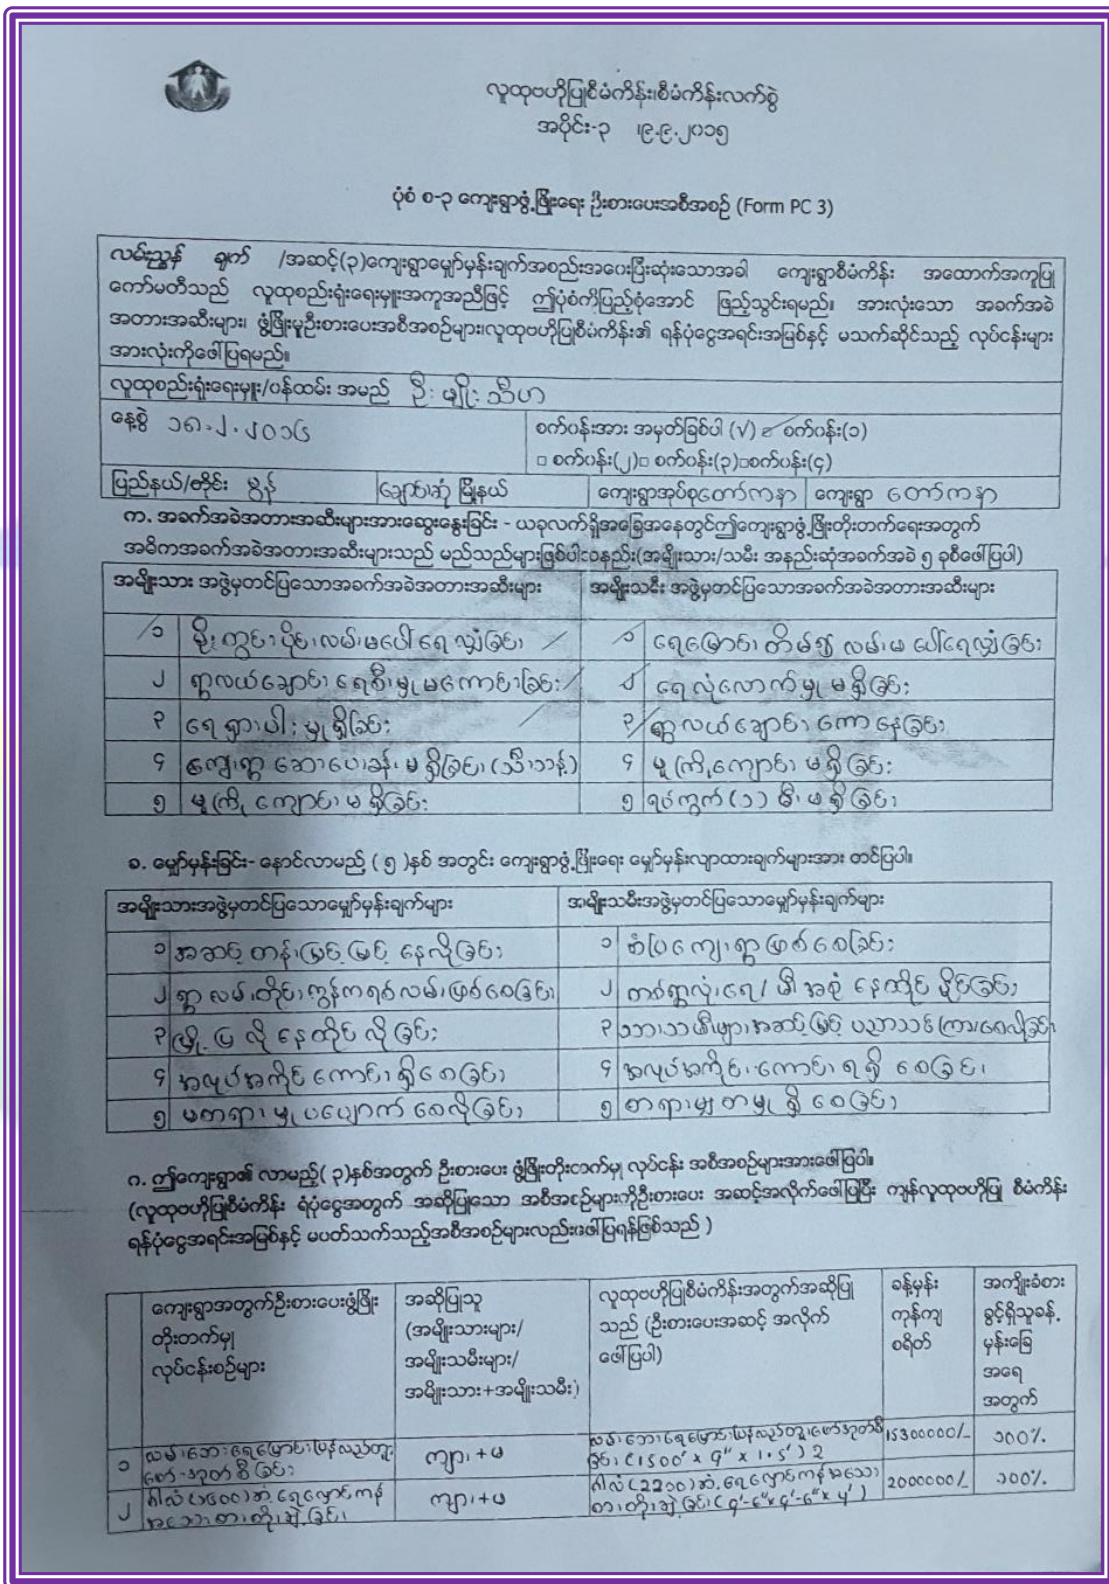 လူထုဗဟိုပြုစီမံကိန်း၊စီမံကိန်းလက်စွဲ
အပိုင်း-၃ ၊၉.၉.၂၀၁၅
ပုံစံ စ-၃ ကျေးရွာဖွံ့ဖြိုးရေး ဦးစားပေးအစီအစဉ် (Form PC 3)
လမ်းညွှန် ချက် /အဆင့်(၃)ကျေးရွာမျှော်မှန်းချက်အစည်းအဝေးပြီးဆုံးသောအခါ ကျေးရွာစီမံကိန်း အထောက်အကူပြု
ကော်မတီသည် လူထုစည်းရုံးရေးမှူးအကူအညီဖြင့် ဤပုံစံကိုပြည့်စုံအောင် ဖြည့်သွင်းရမည်။ အားလုံးသော အခက်အခဲ
အတားအဆီးများ၊ ဖွံ့ဖြိုးမှုဦးစားပေးအစီအစဉ်များ၊လူထုဗဟိုပြုစီမံကိန်း၏ ရန်ပုံငွေအရင်းအမြစ်နှင့် မသက်ဆိုင်သည့် လုပ်ငန်းများ
အားလုံးကိုဖေါ်ပြရမည်။
လူထုစည်းရုံးရေးမှူး/ဝန်ထမ်း အမည် ဦးမျိုးသီဟ
နေ့စွဲ ၁၈.၂.၂၀၁၆ စက်ဝန်းအား အမှတ်ခြစ်ပါ (√) စက်ဝန်း(၁)
□ စက်ဝန်း(၂)□ စက်ဝန်း(၃)□စက်ဝန်း(၄)
ပြည်နယ်/တိုင်း မွန် ချောင်းဆုံ မြို့နယ် ကျေးရွာအုပ်စုတော်ကနာ ကျေးရွာ တော်ကနာ
က. အခက်အခဲအတားအဆီးများအားဆွေးနွေးခြင်း - ယခုလက်ရှိအခြေအနေတွင်ဤကျေးရွာဖွံ့ဖြိုးတိုးတက်ရေးအတွက်
အဓိကအခက်အခဲအတားအဆီးများသည် မည်သည်များဖြစ်ပါသနည်း(အမျိုးသား/သမီး အနည်းဆုံအခက်အခဲ ၅ ခုစီဖေါ်ပြပါ)
အမျိုးသား အဖွဲ့မှတင်ပြသောအခက်အခဲအတားအဆီးများ အမျိုးသမီး အဖွဲ့မှတင်ပြသောအခက်အခဲအတားအဆီးများ
၁ မိုးတွင်းပိုင်းလမ်းမပေါ်ရေလျှံခြင်း ၁ ရေမြောင်းတိမ်၍ လမ်းမပေါ်ရေလျှံခြင်း
၂ ရွာလယ်ချောင်းရေစီးမှုမကောင်းခြင်း ၂ ရေလုံလောက်မှု မရှိခြင်း
၃ ရေရှားပါးမှုရှိခြင်း ၃ ရွာလယ်ချောင်းကောနေခြင်း
၄ ကျေးရွာဆေးပေးခန်းမရှိခြင်း (သီးသန့်) ၄ မူကြိုကျောင်းမရှိခြင်း
၅ မူကြိုကျောင်းမရှိခြင်း ၅ ရပ်ကွက်(၁) မီးမရှိခြင်း
ခ. မျှော်မှန်းခြင်း- နောင်လာမည့် ( ၅ )နှစ် အတွင်း ကျေးရွာဖွံ့ဖြိုးရေး မျှော်မှန်းလျာထားချက်များအား တင်ပြပါ။
အမျိုးသားအဖွဲ့မှတင်ပြသောမျှော်မှန်းချက်များ အမျိုးသမီးအဖွဲ့မှတင်ပြသောမျှော်မှန်းချက်များ
၁ အဆင့်တန်းမြင့်မြင့်နေလိုခြင်း ၁ စံပြကျေးရွာဖြစ်စေခြင်း
၂ ရွာလမ်းတိုင်းကွန်ကရစ်လမ်းဖြစ်စေခြင်း ၂ တစ်ရွာလုံးရေ/မီးအစုံနေထိုင်နိုင်ခြင်း
၃ မြို့ပြလိုနေထိုင်လိုခြင်း ၃ သားသမီးများအဆင့်မြင့်ပညာသင်ကြားစေလိုခြင်း
၄ အလုပ်အကိုင်ကောင်းရှိစေခြင်း ၄ အလုပ်အကိုင်ကောင်းရရှိစေခြင်း
၅ မတရားမှုပပျောက်စေလိုခြင်း ၅ တရားမျှတမှုရှိစေခြင်း
ဂ. ဤကျေးရွာ၏ လာမည့်( ၃)နှစ်အတွက် ဦးစားပေး ဖွံ့ဖြိုးတိုးတက်မှု လုပ်ငန်း အစီအစဉ်များအားဖေါ်ပြပါ။
(လူထုဗဟိုပြုစီမံကိန်း ရံပုံငွေအတွက် အဆိုပြုသော အစီအစဉ်များကိုဦးစားပေး အဆင့်အလိုက်ဖေါ်ပြပြီး ကျန်လူထုဗဟိုပြု စီမံကိန်း
ရန်ပုံငွေအရင်းအမြစ်နှင့် မပတ်သက်သည့်အစီအစဉ်များလည်းဖေါ်ပြရန်ဖြစ်သည် )
ကျေးရွာအတွက်ဦးစားပေးဖွံ့ဖြိုး အဆိုပြုသူ လူထုဗဟိုပြုစီမံကိန်းအတွက်အဆိုပြု ခန့်မှန်း အကျိုးခံစား
တိုးတက်မှု (အမျိုးသားများ/ သည် (ဦးစားပေးအဆင့် အလိုက် ကုန်ကျ ခွင့်ရှိသူခန့်
လုပ်ငန်းစဉ်များ အမျိုးသမီးများ/ ဖေါ်ပြပါ) စရိတ် မှန်းခြေ
အမျိုးသား+အမျိုးသမီး) အရေ
အတွက်
၁ လမ်းဘေးရေမြောင်းပြန်လည်တူး ကျား+မ လမ်းဘေးရေမြောင်းပြန်လည်တူးဖော်အုတ်စီ 15300000/- ၁၀၀%
ဖော်-အုတ်စီခြင်း ခြင်း (1500' x 9" x 1.5') 2
၂ ဂါလံ(၁၆၀၀)ဆံ့ရေလှောင်ကန် ကျား+မ ဂါလံ(2200)ဆံ့ရေလှောင်ကန်အသေး 2000000/- ၁၀၀%
အသေးစားတိုးချဲ့ခြင်း စားတိုးချဲ့ခြင်း (9'-6"x9'-6"x4')